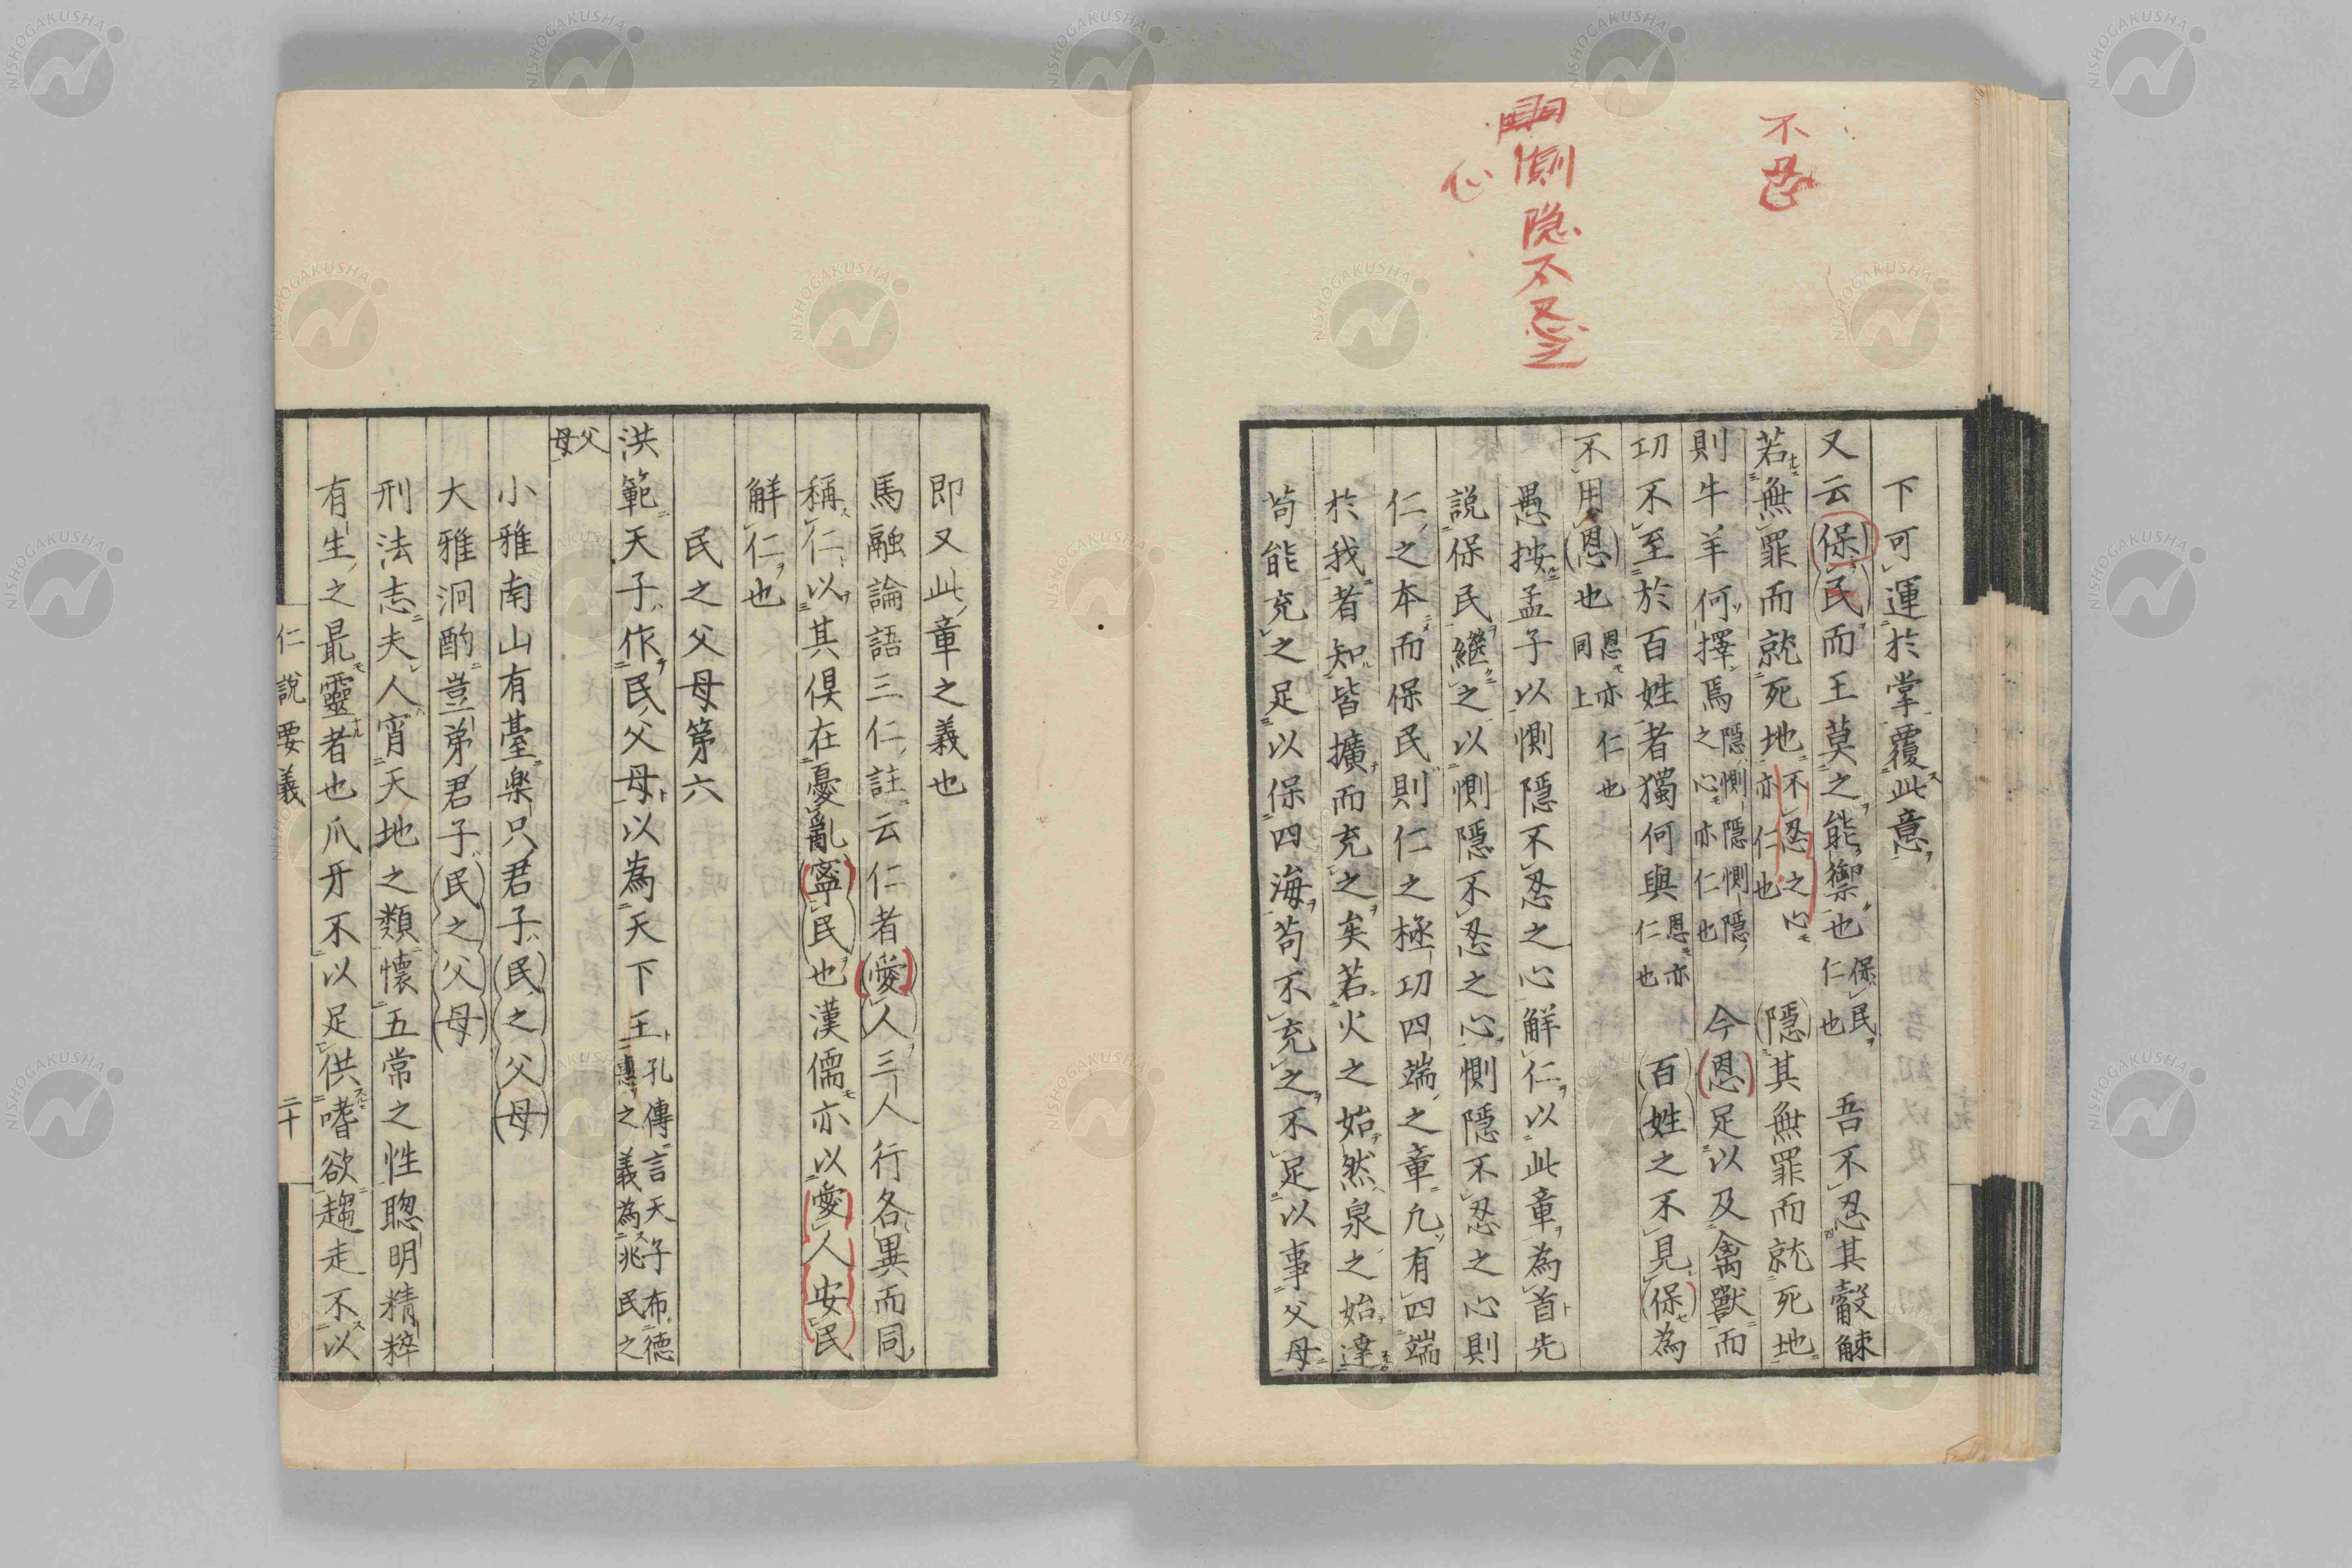 不忍
惻隠不忍之
心
下可運於掌覆此意
又云保民而王莫之能禦也保民仁也 吾不忍其觳觫
若無罪而就死地不忍之心亦仁也 隱其無罪而就死地
則牛羊何擇焉隱惻隱惻隱之心亦仁也 今恩足以及禽獸而
功不至於百姓者獨何與恩亦仁也 百姓之不見保為
不用恩也恩亦仁也同上
愚按孟子以惻隱不忍之心解仁以此章為首先
說保民繼之以惻隱不忍之心惻隱不忍之心則
仁之本而保民則仁之極功四端之章凢有四端
於我者知皆擴而充之矣若火之始然泉之始達
苟能充之足以保四海苟不充之不足以事父母
即又此章之義也
馬融論語三仁註云仁者愛人三人行各異而同
稱仁以其俱在憂亂寧民也漢儒亦以愛人安民
解仁也
民之父母第六
洪範天子作民父母以為天下王孔傳言天子布德惠之義為兆民之
父母
小雅南山有臺楽只君子民之父母
大雅泂酌豈弟君子民之父母
刑法志夫人宵天地之類懷五常之性聰明精粹
有生之最靈者也爪牙不以足供嗜欲趨走不以
仁說要義
二十
NISHOGAKUSHA